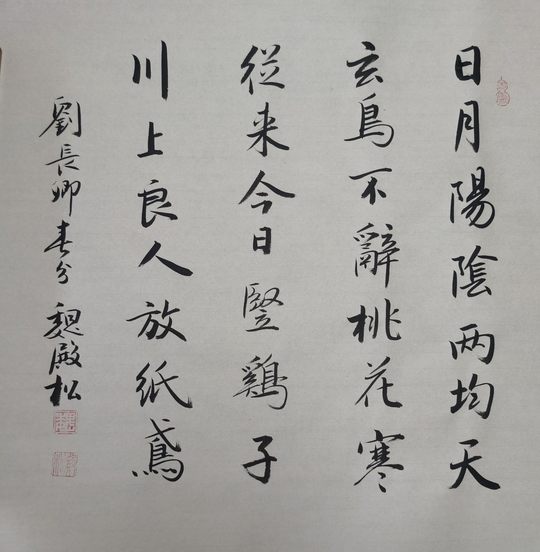 日月陽陰两均天
玄鳥不辭桃花寒
從来今日豎鷄子
川上良人放紙鳶
劉長卿春分 魏殿松